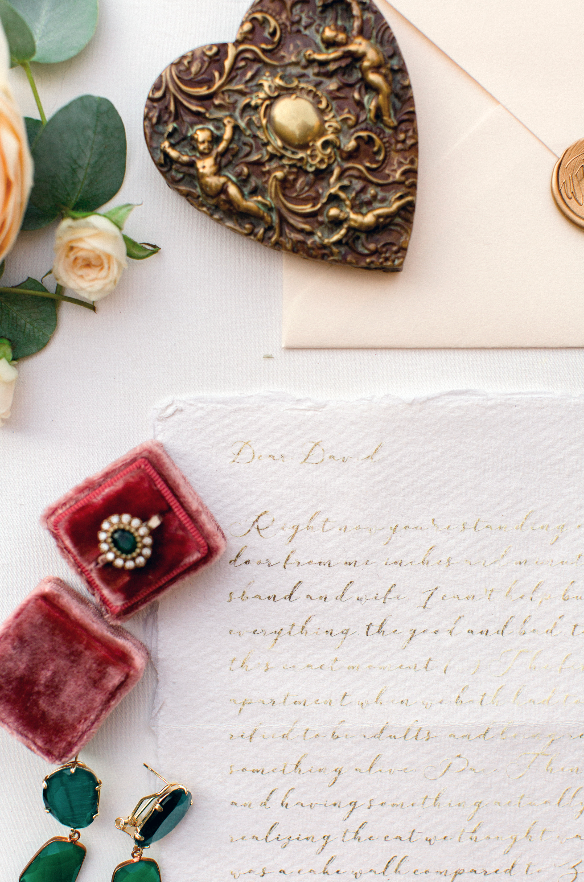 Dear David
Right now you're standing
door from me inches and
sband and wife I can't help bu
everything the good and bad t
this exact moment
apartment when we both had
rified to be adults and
something alive
and having something actuall
realizing the cat we thought
was a cake walk compared to